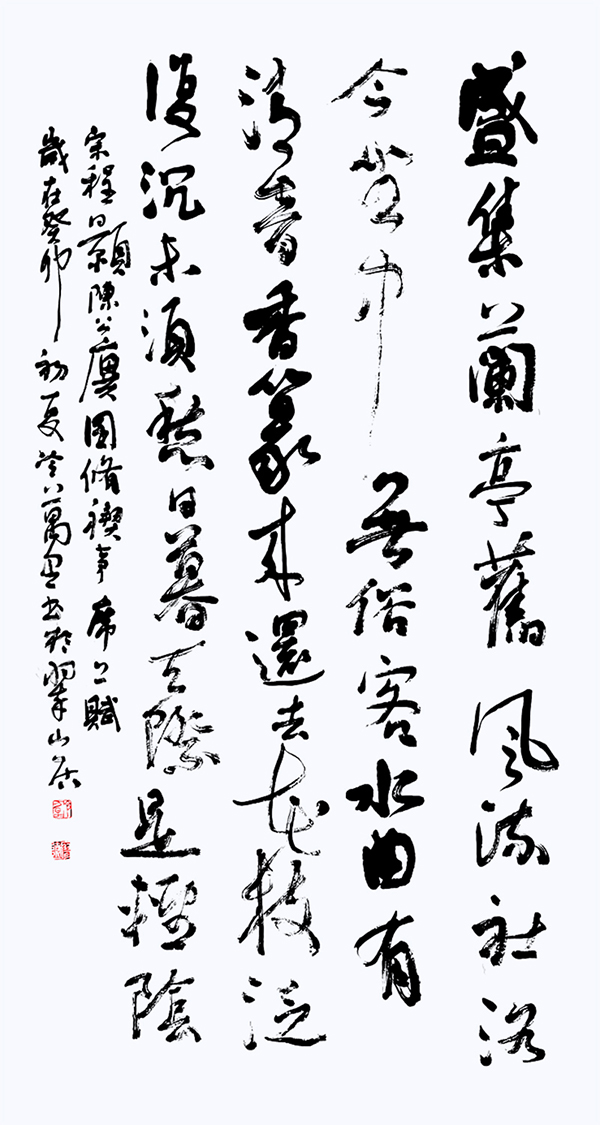 盛集蘭亭舊風流社洛
今坐中無俗客水曲有
清音香篆來還去花枝泛
復沉未須愁日暮天際是輕陰
宋程顥陳公廙園脩禊事席上賦
歲在癸卯初夏萬書於翠山居